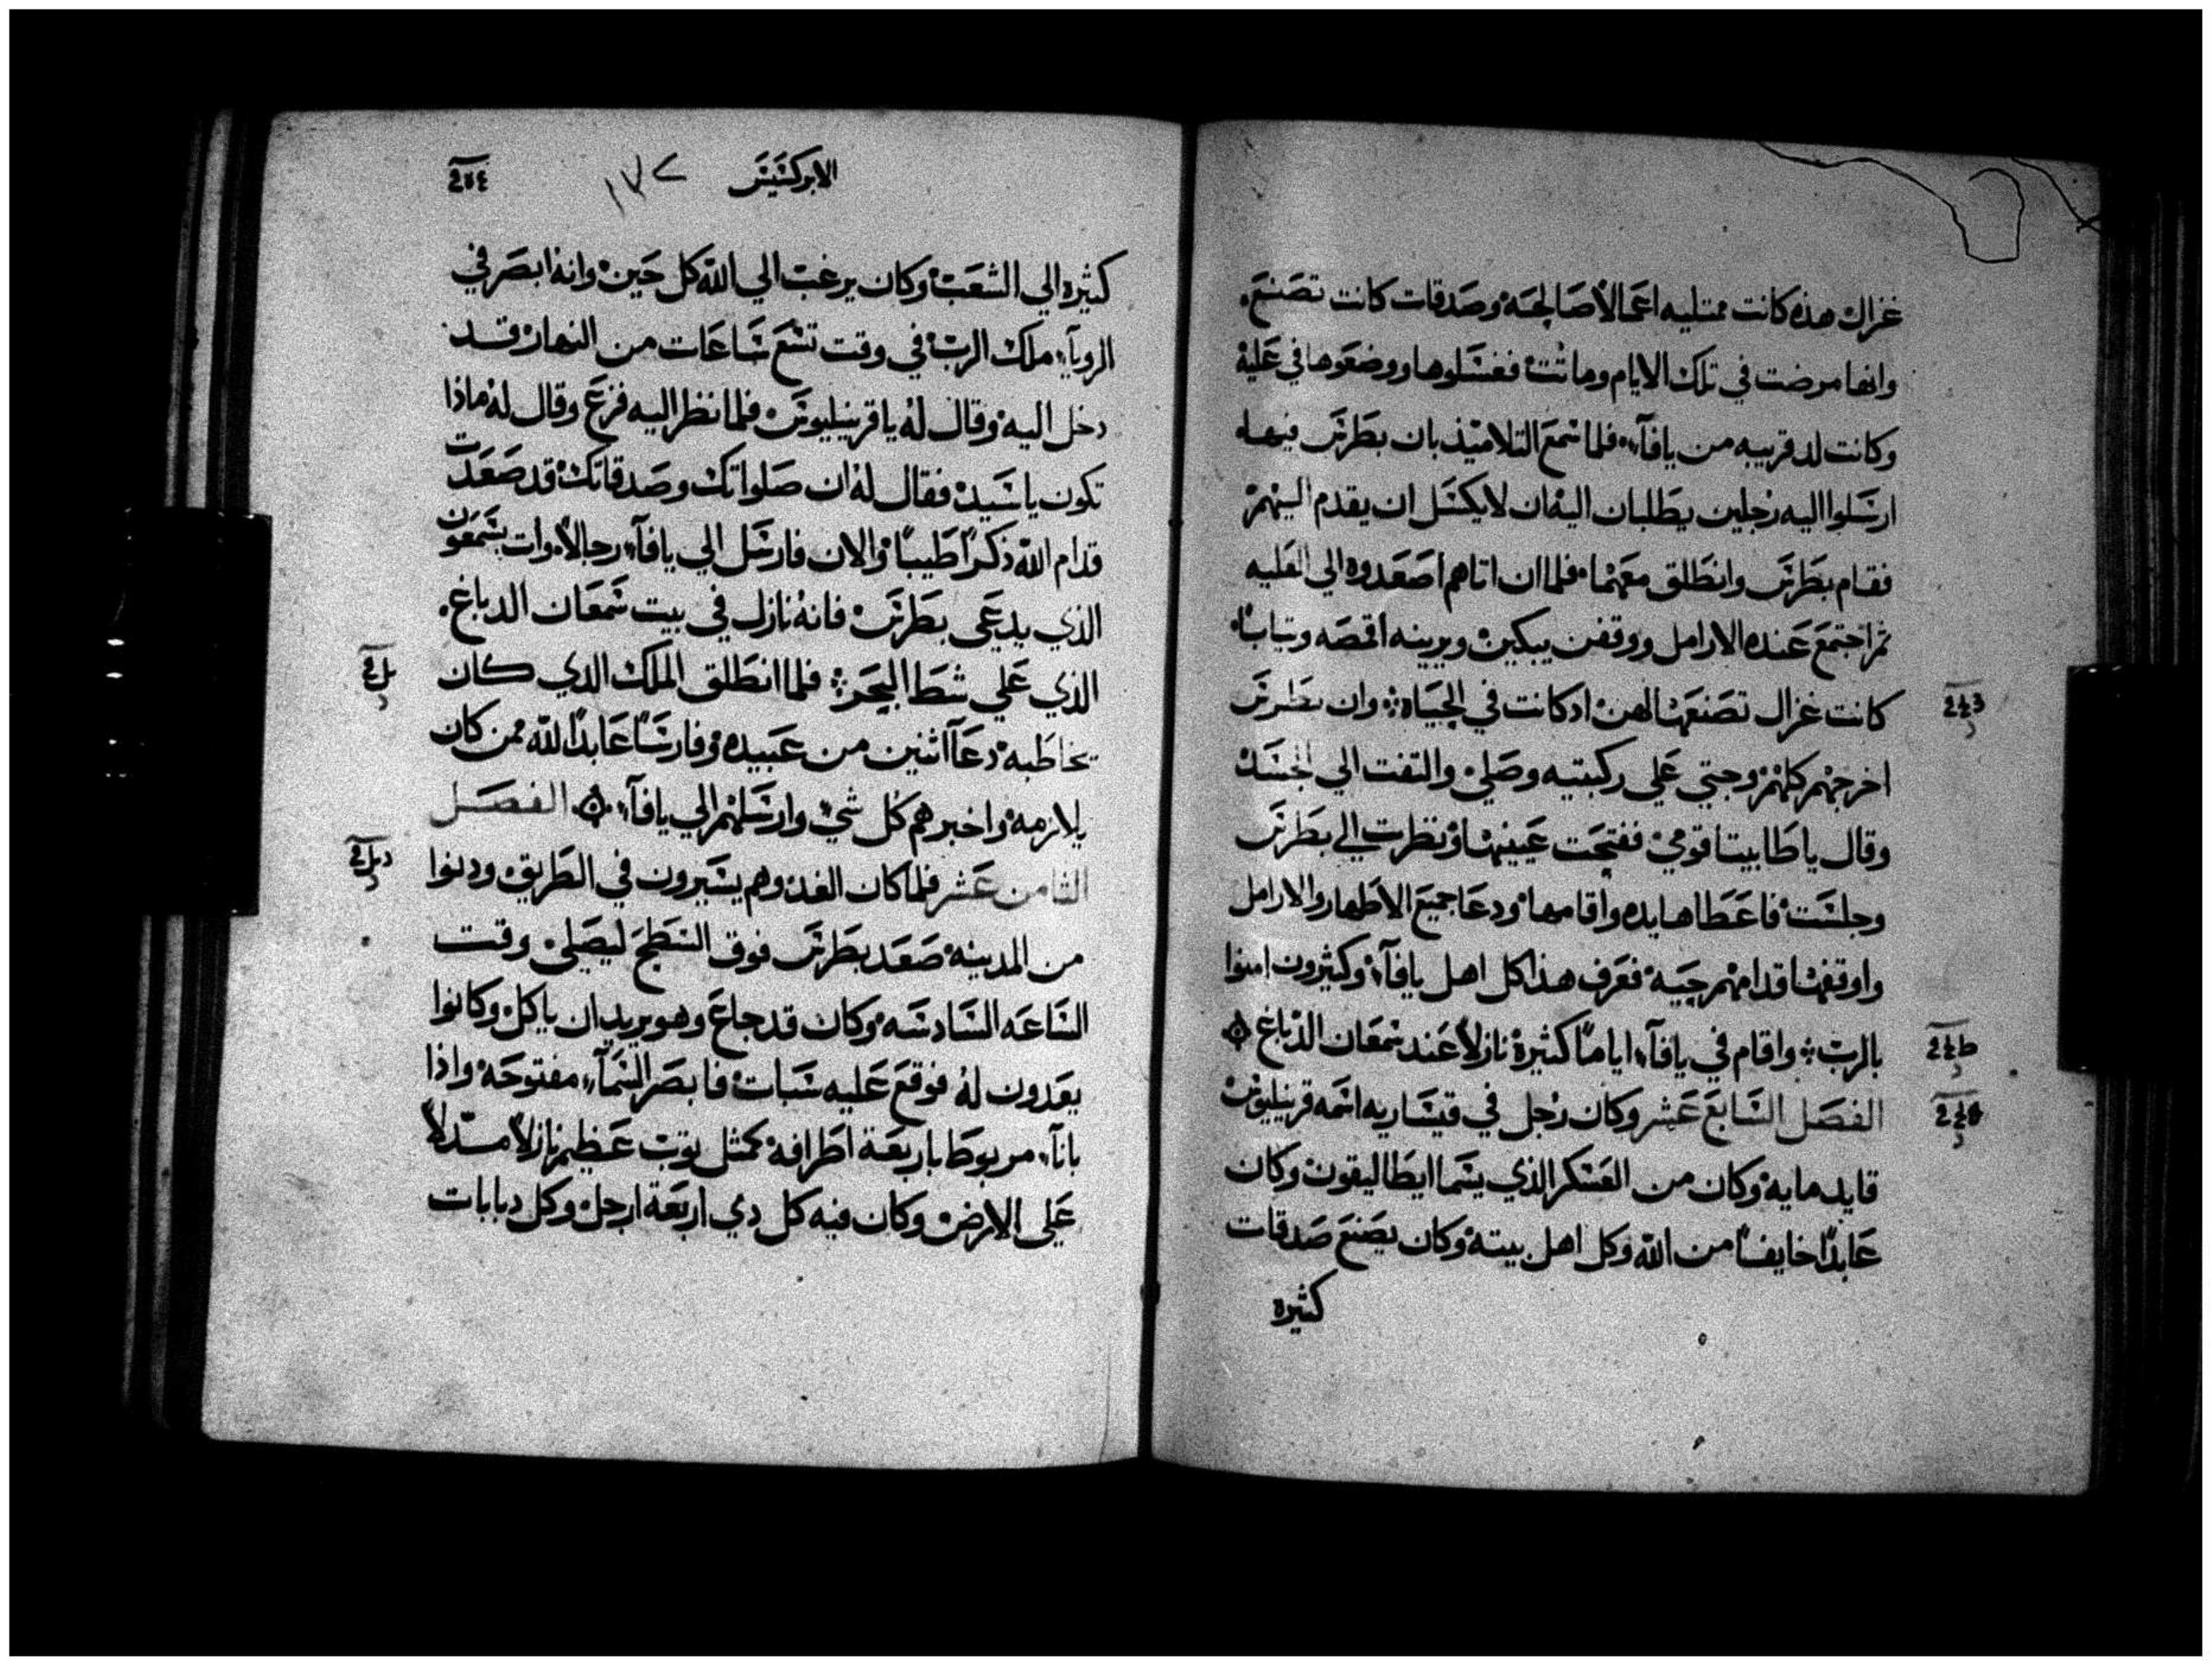 غزال هذه كانت ممتليه اعمالاً صالحة وصدقات كانت تصنع
وانها مرضت في تلك الايام وماتت فغسلوها ووضعوها في علية
وكانت لد قريبه من يافآ فلما سمع التلاميذ بان بطرس فيها
ارسلوا اليه رجلين يطلبان اليه ان لا يكسل ان يقدم اليهم
فقام بطرس وانطلق معهما فلما ان اتاهم اصعدوه الي العليه
ثم اجتمع عنده الارامل ووقفن يبكين ويرينه اقمصه وتياباً
كانت غزال تصنعها لهن ادكانت في الحياة وان بطرس
اخرجهم كلهم وجتي علي ركبتيه وصلي والتفت الي الجسد
وقال ياطابيتا قومي ففتحت عينيها ونظرت الي بطرس
وجلست فاعطاها يده واقامها ودعا جميع الاطهار والارامل
واوقفها قدامهم حيه فعرف هذا كل اهل يافآ وكثيرون امنوا
بالرب واقام في يافآ اياماً كثيرة نازلاً عند سمعان الدباغ
الفصل السابع عشر وكان رجل في قيساريه اسمه قرنيليوس
قايد مايه وكان من العسكر الذي يسما ايطاليقون وكان
عابداً خايفاً من الله وكل اهل بيته وكان يصنع صدقات
كثيره
الابركسيس ١٧٢
كثيره الي الشعب وكان يرغب الي الله كل حين وانه ابصر في
الرويآ ملك الرب في وقت تسع ساعات من النهار قد
دخل اليه وقال له يا قرنيليوس فلما نظر اليه فزع وقال له ماذا
تكون يا سيد فقال له ان صلواتك وصدقاتك قد صعدت
قدام الله ذكراً طيباً والان فارسل الي يافآ رجالاً وات بسمعون
الذي يدعى بطرس فانه نازل في بيت سمعان الدباغ
الذي علي شط البحر فلما انطلق الملك الدي كان
يخاطبه دعآ اثنين من عبيده وفارساً عابداً لله ممن كان
يلازمه واخبرهم كل شي وارسلهم الي يافآ الفصل
الثامن عشر فلما كان الغد وهم يسيرون في الطريق ودنوا
من المدينه صعد بطرس فوق السطح ليصلي وقت
الساعه السادسه وكان قد جاع وهو يريد ان ياكل وكانوا
يعدون له فوقع عليه سبات فابصر السمآ مفتوحه واذا
بانآ مربوط باربعة اطرافه كمثل توب عظيم نازلاً مسدلاً
علي الارض وكان فيه كل دي اربعة ارجل وكل دبابات